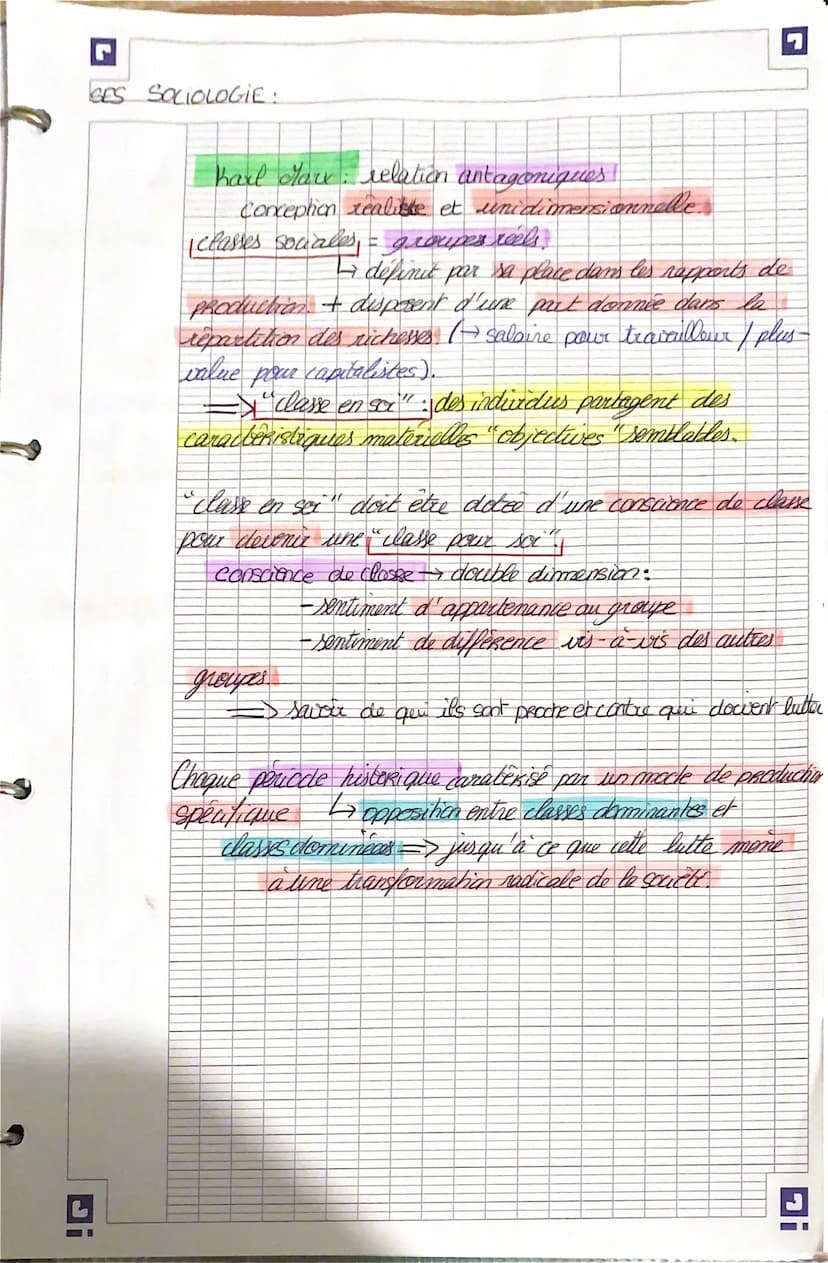 SES SOCIOLOGIE :
Karl Marx : relation antagoniques
conception réaliste et unidimensionnelle.
classes sociales = groupes réels.
↳ définit par sa place dans les rapports de
production + disposent d'une part donnée dans la
répartition des richesses. (→ salaire pour travailleur / plus-
value pour capitalistes).
=> "classe en soi" : des individus partagent des
caractéristiques matérielles "objectives" semblables.
"classe en soi" doit être dotée d'une conscience de classe
pour devenir une "classe pour soi"
conscience de classe → double dimension :
- sentiment d'appartenance au groupe
- sentiment de différence vis-à-vis des autres
groupes.
=> savoir de qui ils sont proche et contre qui doivent lutter
Chaque période historique caratérisé par un mode de production
spécifique ↳ opposition entre classes dominantes et
classes dominées => jusqu'à ce que cette lutte mène
à une transformation radicale de la société.